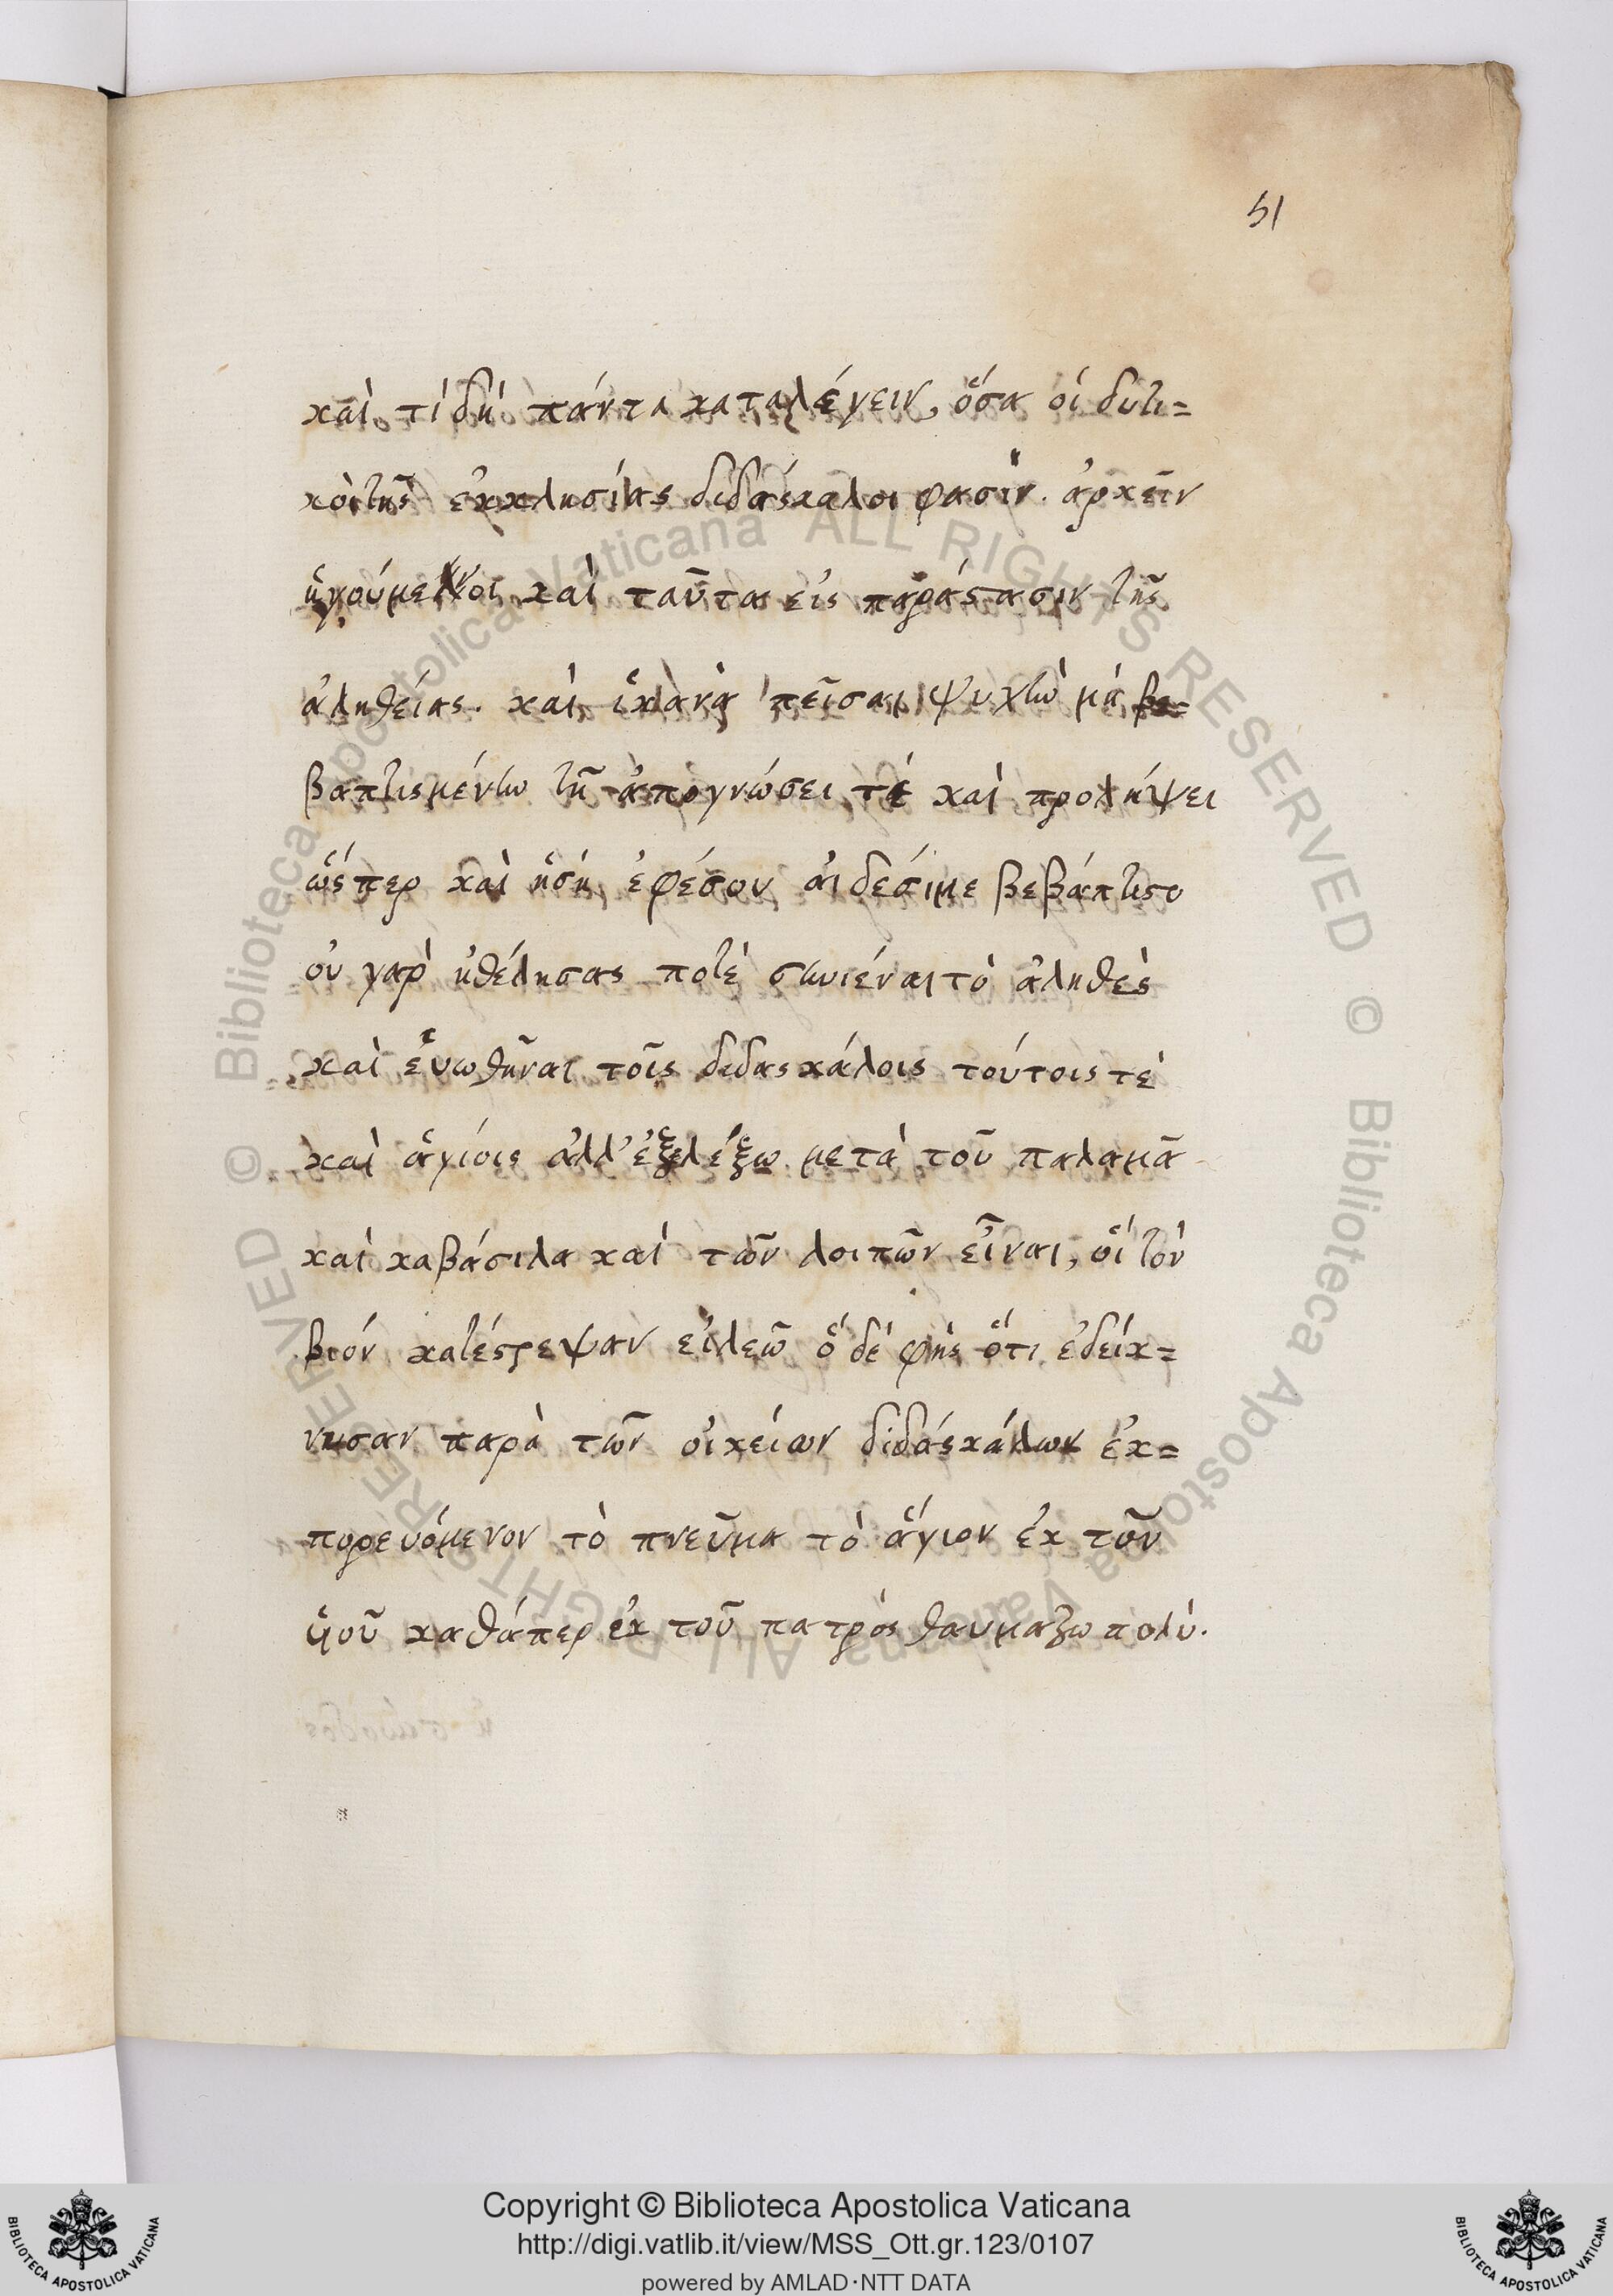 51
καὶ τί δὴ πάντα καταλέγειν, ὅσα οἱ δυτι=
κὸι τῆς ἐκκλησίας διδάσκαλοι φασὶν. ἀρκεῖν
ἡγούμενοι καὶ ταῦτα εἰς παράστασιν τῆς
ἀληθείας. καὶ ἱκανὰ πεῖσαι ψυχὴν μὴ
βαπτισμένην τῇ ἀπογνώσει τέ καὶ προλήψει
ὥσπερ καὶ ἡσὴ, ἐφέσου αἰδέσιμε βεβάπτισο
οὐ γαρ̀ ἠθέλησας ποτὲ συνιέναι τὸ ἀληθὲς
καὶ ἑνωθῆναι τοῖς διδασκάλοις τούτοις τὲ
καὶ ἁγίοις ἀλλ' ἐξελέξω μετὰ τοῦ παλαμᾶ
καὶ καβάσιλα καὶ τῶν λοιπῶν εἶναι, οἵ τὸν
βιόν κατέστρεψαν εἰλεῶ ὅ δέ φὴς ὅτι ἐδείκ=
νυσαν παρὰ τῶν οἰκείων διδάσκάλων ἐκ=
πορευόμενον τὸ πνεῦμα τὸ ἅγιον ἐκ τοῦ
ὑιοῦ καθάπερ ἐκ τοῦ πατρὸς θαυμαζω πολύ.
© Biblioteca Apostolica Vaticana ALL RIGHTS RESERVED
© Biblioteca Apostolica Vaticana ALL RIGHTS RESERVED
Copyright © Biblioteca Apostolica Vaticana
http://digi.vatlib.it/view/MSS_Ott.gr.123/0107
powered by AMLAD·NTT DATA
BIBLIOTECA APOSTOLICA VATICANA
BIBLIOTECA APOSTOLICA VATICANA